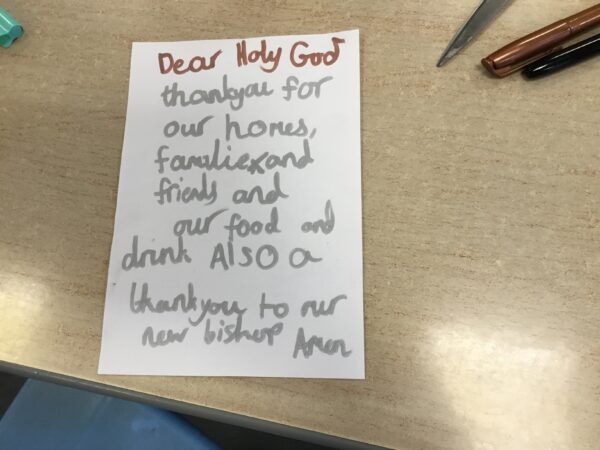 Dear Holy God
thankyou for
our homes,
families and
friends and
our food and
drink Also a
thankyou to our
new bishop Amen